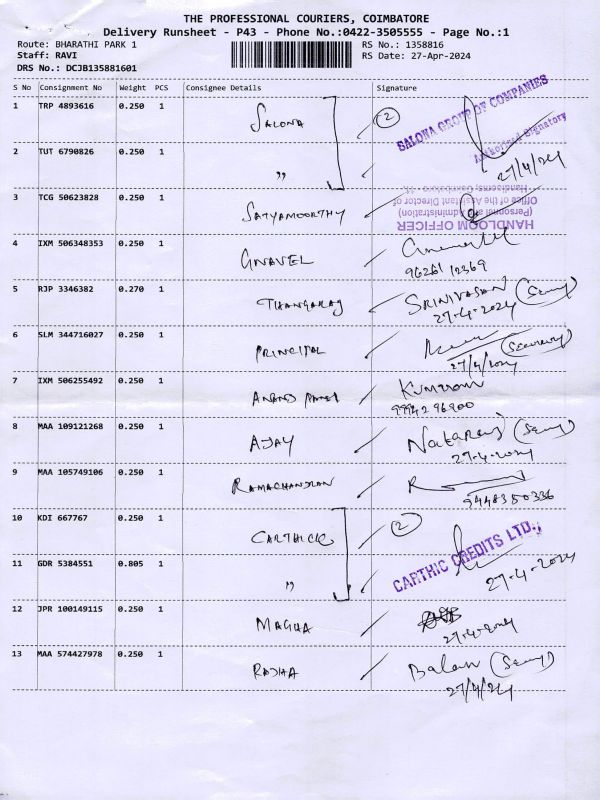 THE PROFESSIONAL COURIERS, COIMBATORE
Delivery Runsheet - P43 - Phone No.:0422-3505555 - Page No.:1
Route: BHARATHI PARK 1 RS No.: 1358816
Staff: RAVI RS Date: 27-Apr-2024
DRS No.: DCJB135881601
S No Consignment No Weight PCS Consignee Details Signature
1 TRP 4893616 0.250 1 SALONA 2 SALONA GROUP OF COMPANIES
Authorised Signatory
2 TUT 6790826 0.250 1 " 27/4/24
3 TCG 50623828 0.250 1 SATYAMOORTHY
HANDLOOM OFFICER
(Personnel and Administration)
Office of the Assistant Director of
Handlooms, Coimbatore
4 IXM 506348353 0.250 1 GNAVEL
5 RJP 3346382 0.270 1 THANGARAJ SRINIVASAN
27-4-2024
6 SLM 344716027 0.250 1 PRINCIPAL (Security)
27/4/2024
7 IXM 506255492 0.250 1 ANAND
8 MAA 109121268 0.250 1 AJAY Nataraj
27-4-2024
9 MAA 105749106 0.250 1 RAMACHANDRAN
9448350336
10 KDI 667767 0.250 1 2 CARTHIC CREDITS LTD.,
11 GDR 5384551 0.805 1 " 27-4-2024
12 JPR 100149115 0.250 1 MAGHA
27-4-2024
13 MAA 574427978 0.250 1 RADHA Balan
27/4/24